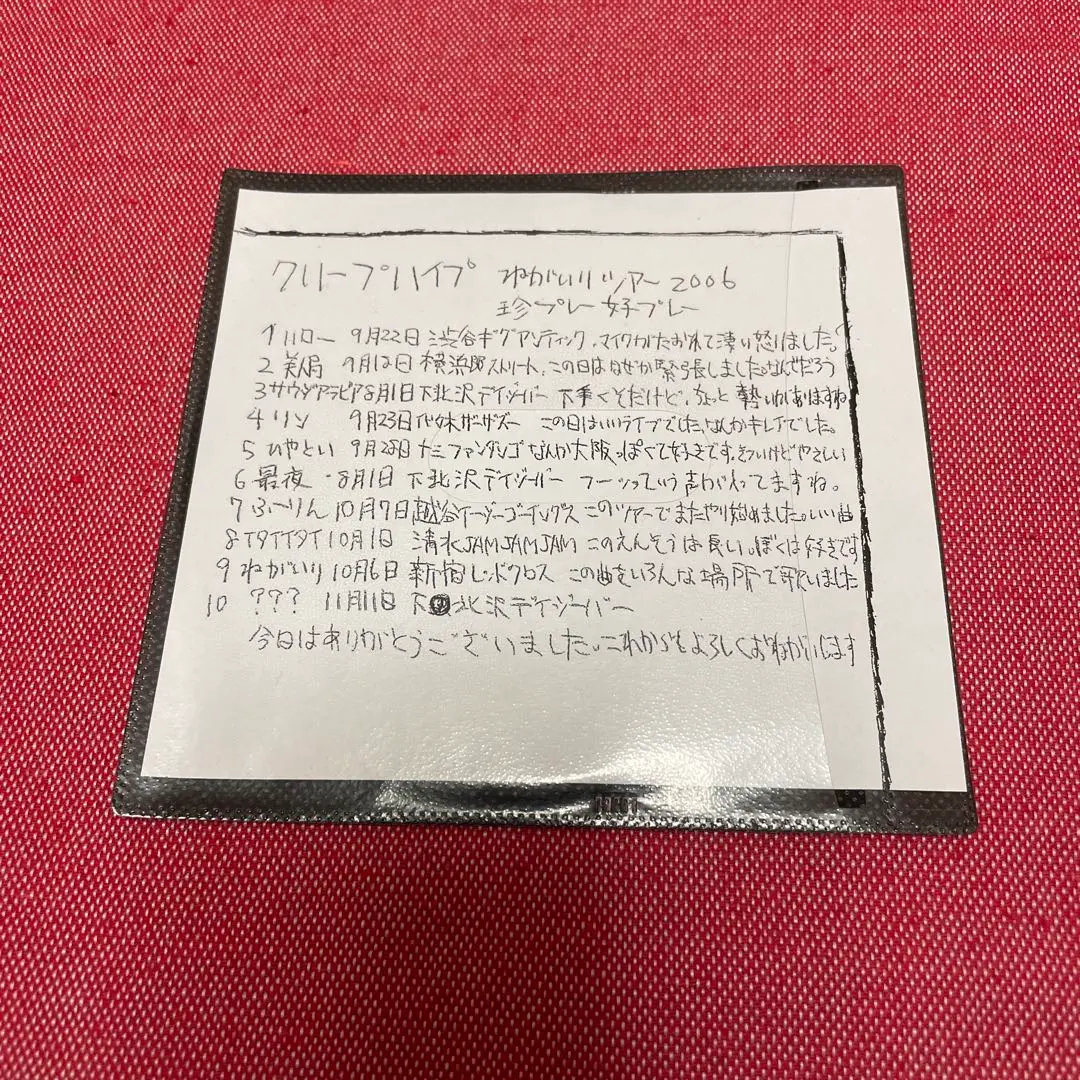 クリープハイプ ねがいりツアー2006
珍プレー好プレー
1 ハロー 9月22日 渋谷ギグアンティック、マイクがたおれて凄い怒りました。
2 美人局 9月12日 横浜 ストリート、この日はなぜか緊張しました。なんでだろう
3 サウジアラビア 8月1日 下北沢デイジーバー 下手くそだけど、ちょっと勢いがありますね
4 リン 9月23日 代々木ザーザズー この日はいいライブでした、なんかキレイでした。
5 ひやとい 9月25日 十三ファンダンゴ なんか大阪っぽくて好きです。きついけどやさしい
6 最夜 8月1日 下北沢デイジーバー フーッっていう声が入ってますね。
7 ふーりん 10月7日 越谷イージーゴーイングス このツアーでまたやり始めました。いい曲
8 イタイイタイ 10月1日 清水JAMJAMJAM このえんそうは長い。ぼくは好きです
9 ねがいり 10月6日 新宿レッドクロス この曲をいろんな場所で歌いました
10 ??? 11月11日 下北沢デイジーバー
今日はありがとうございました。これからもよろしくおねがいします